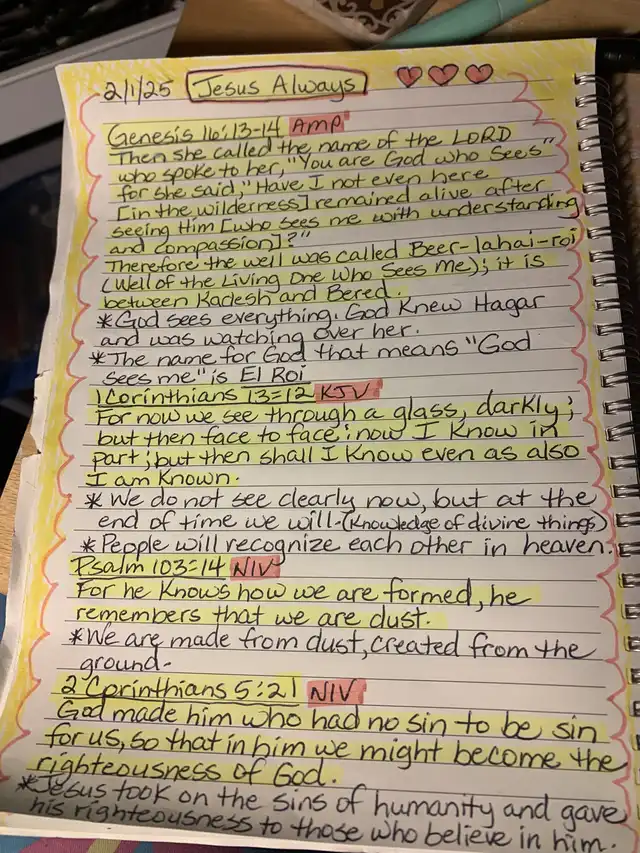 2/1/25 Jesus Always
Genesis 16:13-14 AMP
Then she called the name of the LORD
who spoke to her, "You are God who Sees"
for she said, "Have I not even here
[in the wilderness] remained alive after
seeing Him [who sees me with understanding
and compassion]?"
Therefore the well was called Beer-lahai-roi
(Well of the Living One Who Sees Me); it is
between Kadesh and Bered.
*God sees everything. God Knew Hagar
and was watching over her.
*The name for God that means "God
sees me" is El Roi
1 Corinthians 13:12 KJV
For now we see through a glass, darkly;
but then face to face: now I Know in
part; but then shall I Know even as also
I am Known.
* We do not see clearly now, but at the
end of time we will-(Knowledge of divine things)
* People will recognize each other in heaven.
Psalm 103:14 NIV
For he Knows how we are formed, he
remembers that we are dust.
*We are made from dust, created from the
ground-
2 Corinthians 5:21 NIV
God made him who had no sin to be sin
for us, so that in him we might become the
righteousness of God.
*Jesus took on the sins of humanity and gave
his righteousness to those who believe in him.